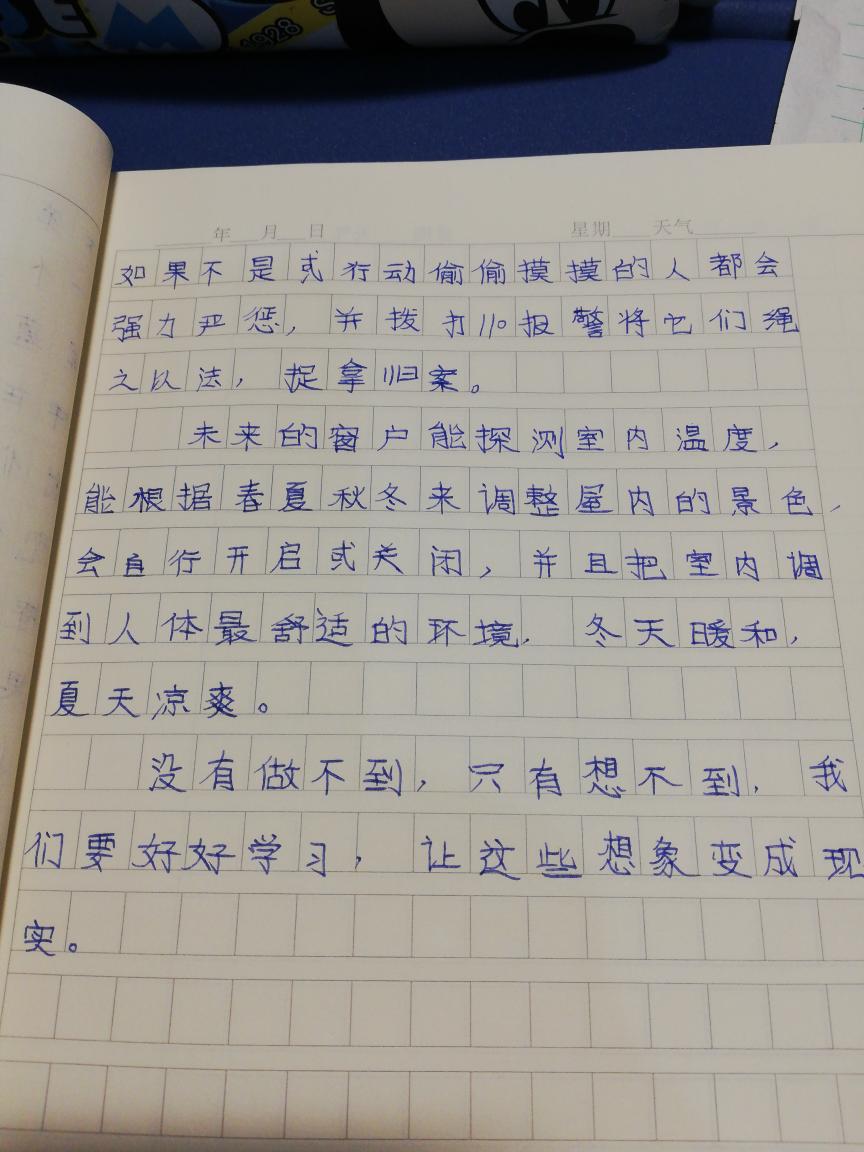 1928
年 月 日 星期 天气
如果不是或行动偷偷摸摸的人都会
强力严惩，并拨打110报警将它们绳
之以法，捉拿归案。
未来的窗户能探测室内温度，
能根据春夏秋冬来调整屋内的景色，
会自行开启或关闭，并且把室内调
到人体最舒适的环境，冬天暖和，
夏天凉爽。
没有做不到，只有想不到，我
们要好好学习，让这些想象变成现
实。